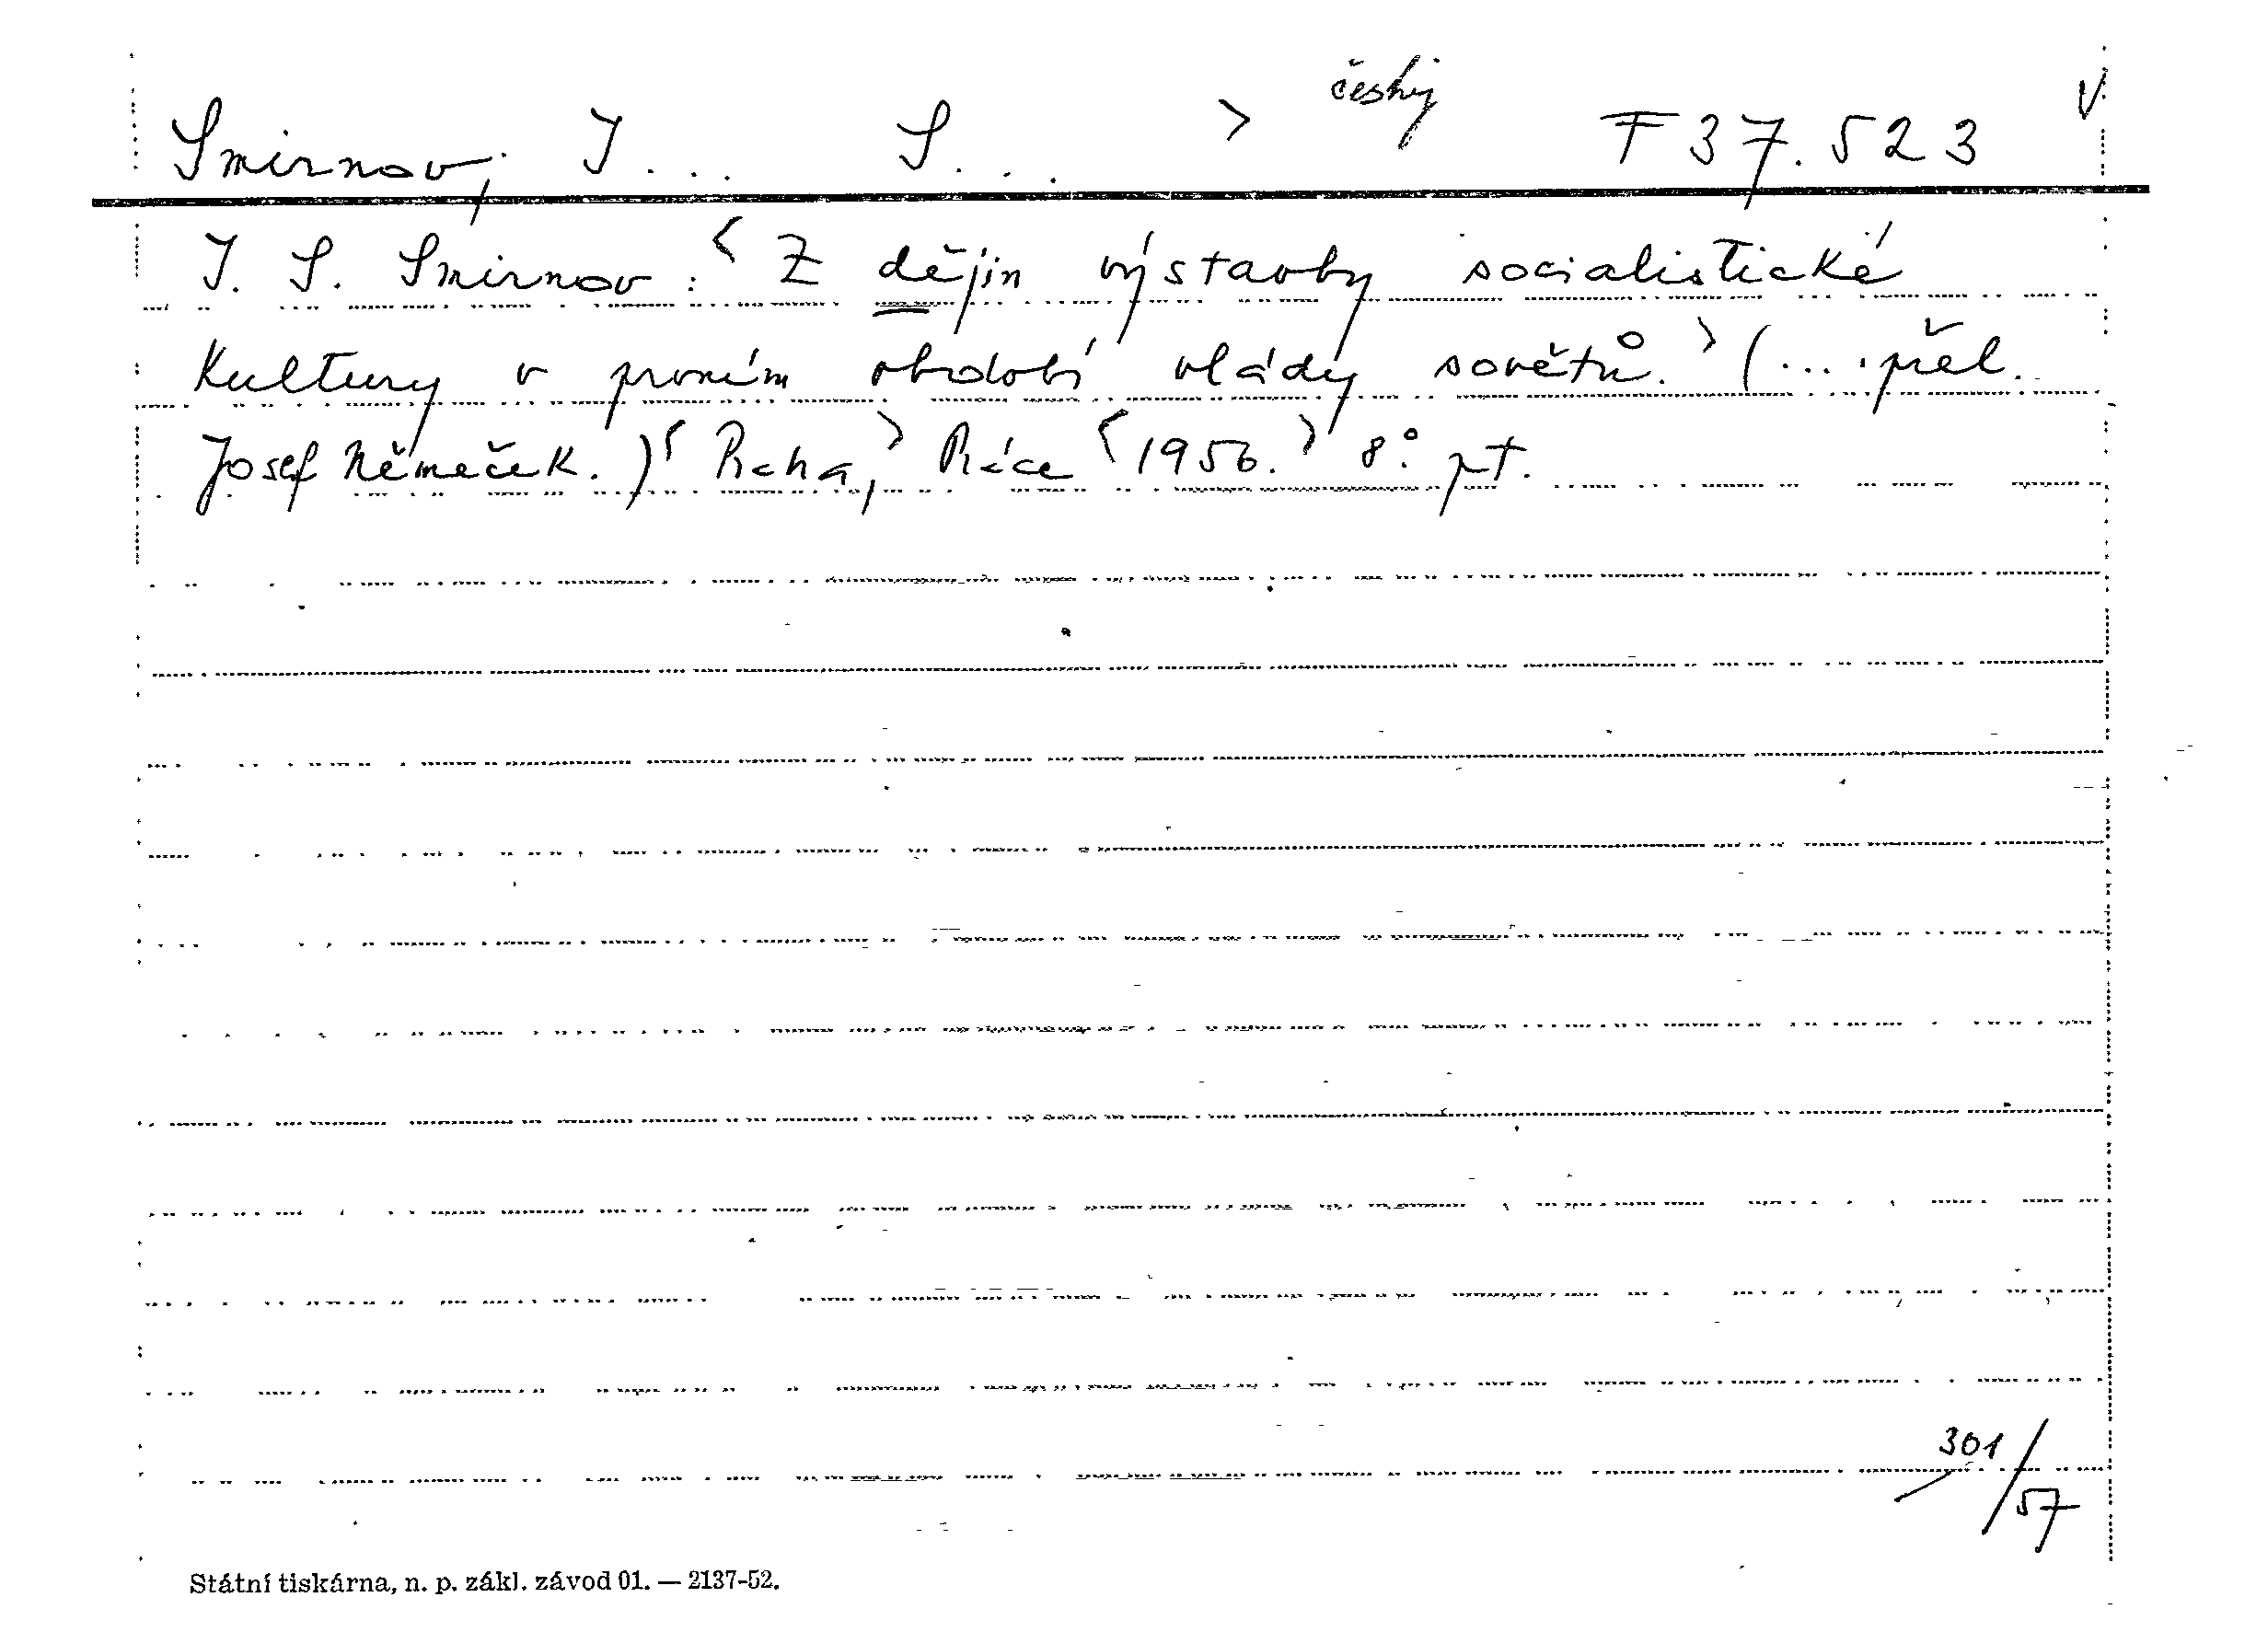 Smirnov, I... S... > český F 37.523 V
I. S. Smirnov: < Z dějin výstavby socialistické
kultury v prvním období vlády sovětů. > (... přel.
Josef Němeček.) < Praha, > Práce < 1956. > 8° pt.
301/57
Státní tiskárna, n. p. zákl. závod 01. — 2137-52.